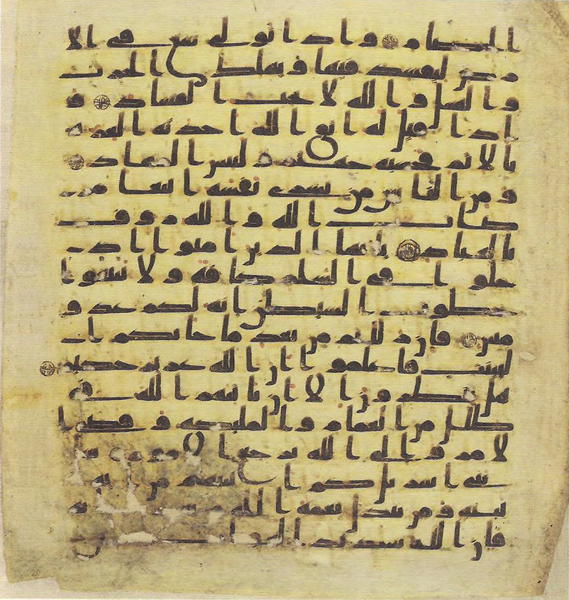 ا الخصام و اذا تولى سعى في الا
رض ليفسد فيها و يهلك الحرث
و النسل و الله لا يحب الفساد و
اذا قيل له اتق الله اخذته العزة
بالاثم فحسبه جهنم و لبئس المهاد
و من الناس من يشري نفسه ابتغا مر
ضات الله و الله رووف
بالعباد يايها الذين امنوا اد
خلوا في السلم كافة و لا تتبعوا
خطوت الشيطن انه لكم عدو
مبين فان زللتم من بعد ما جاتكم ا
لبينت فاعلموا ان الله عزيز حكيم
هل ينظرون الا ان ياتيهم الله في
ظلل من الغمام و الملئكة و قضي ا
لامر و الى الله ترجع الامور سل
بني اسريل كم اتينهم من اية
بينة و من يبدل نعمة الله من بعد ما
فان الله شديد العقاب